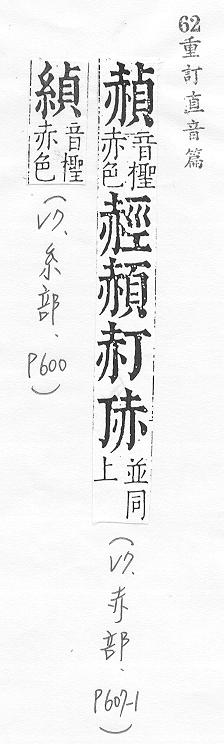 62重訂直音篇
赬音檉赤色䞓頳並同上
(V7、赤部、P607-1)
緽音檉赤色
(V7、糸部、P600)